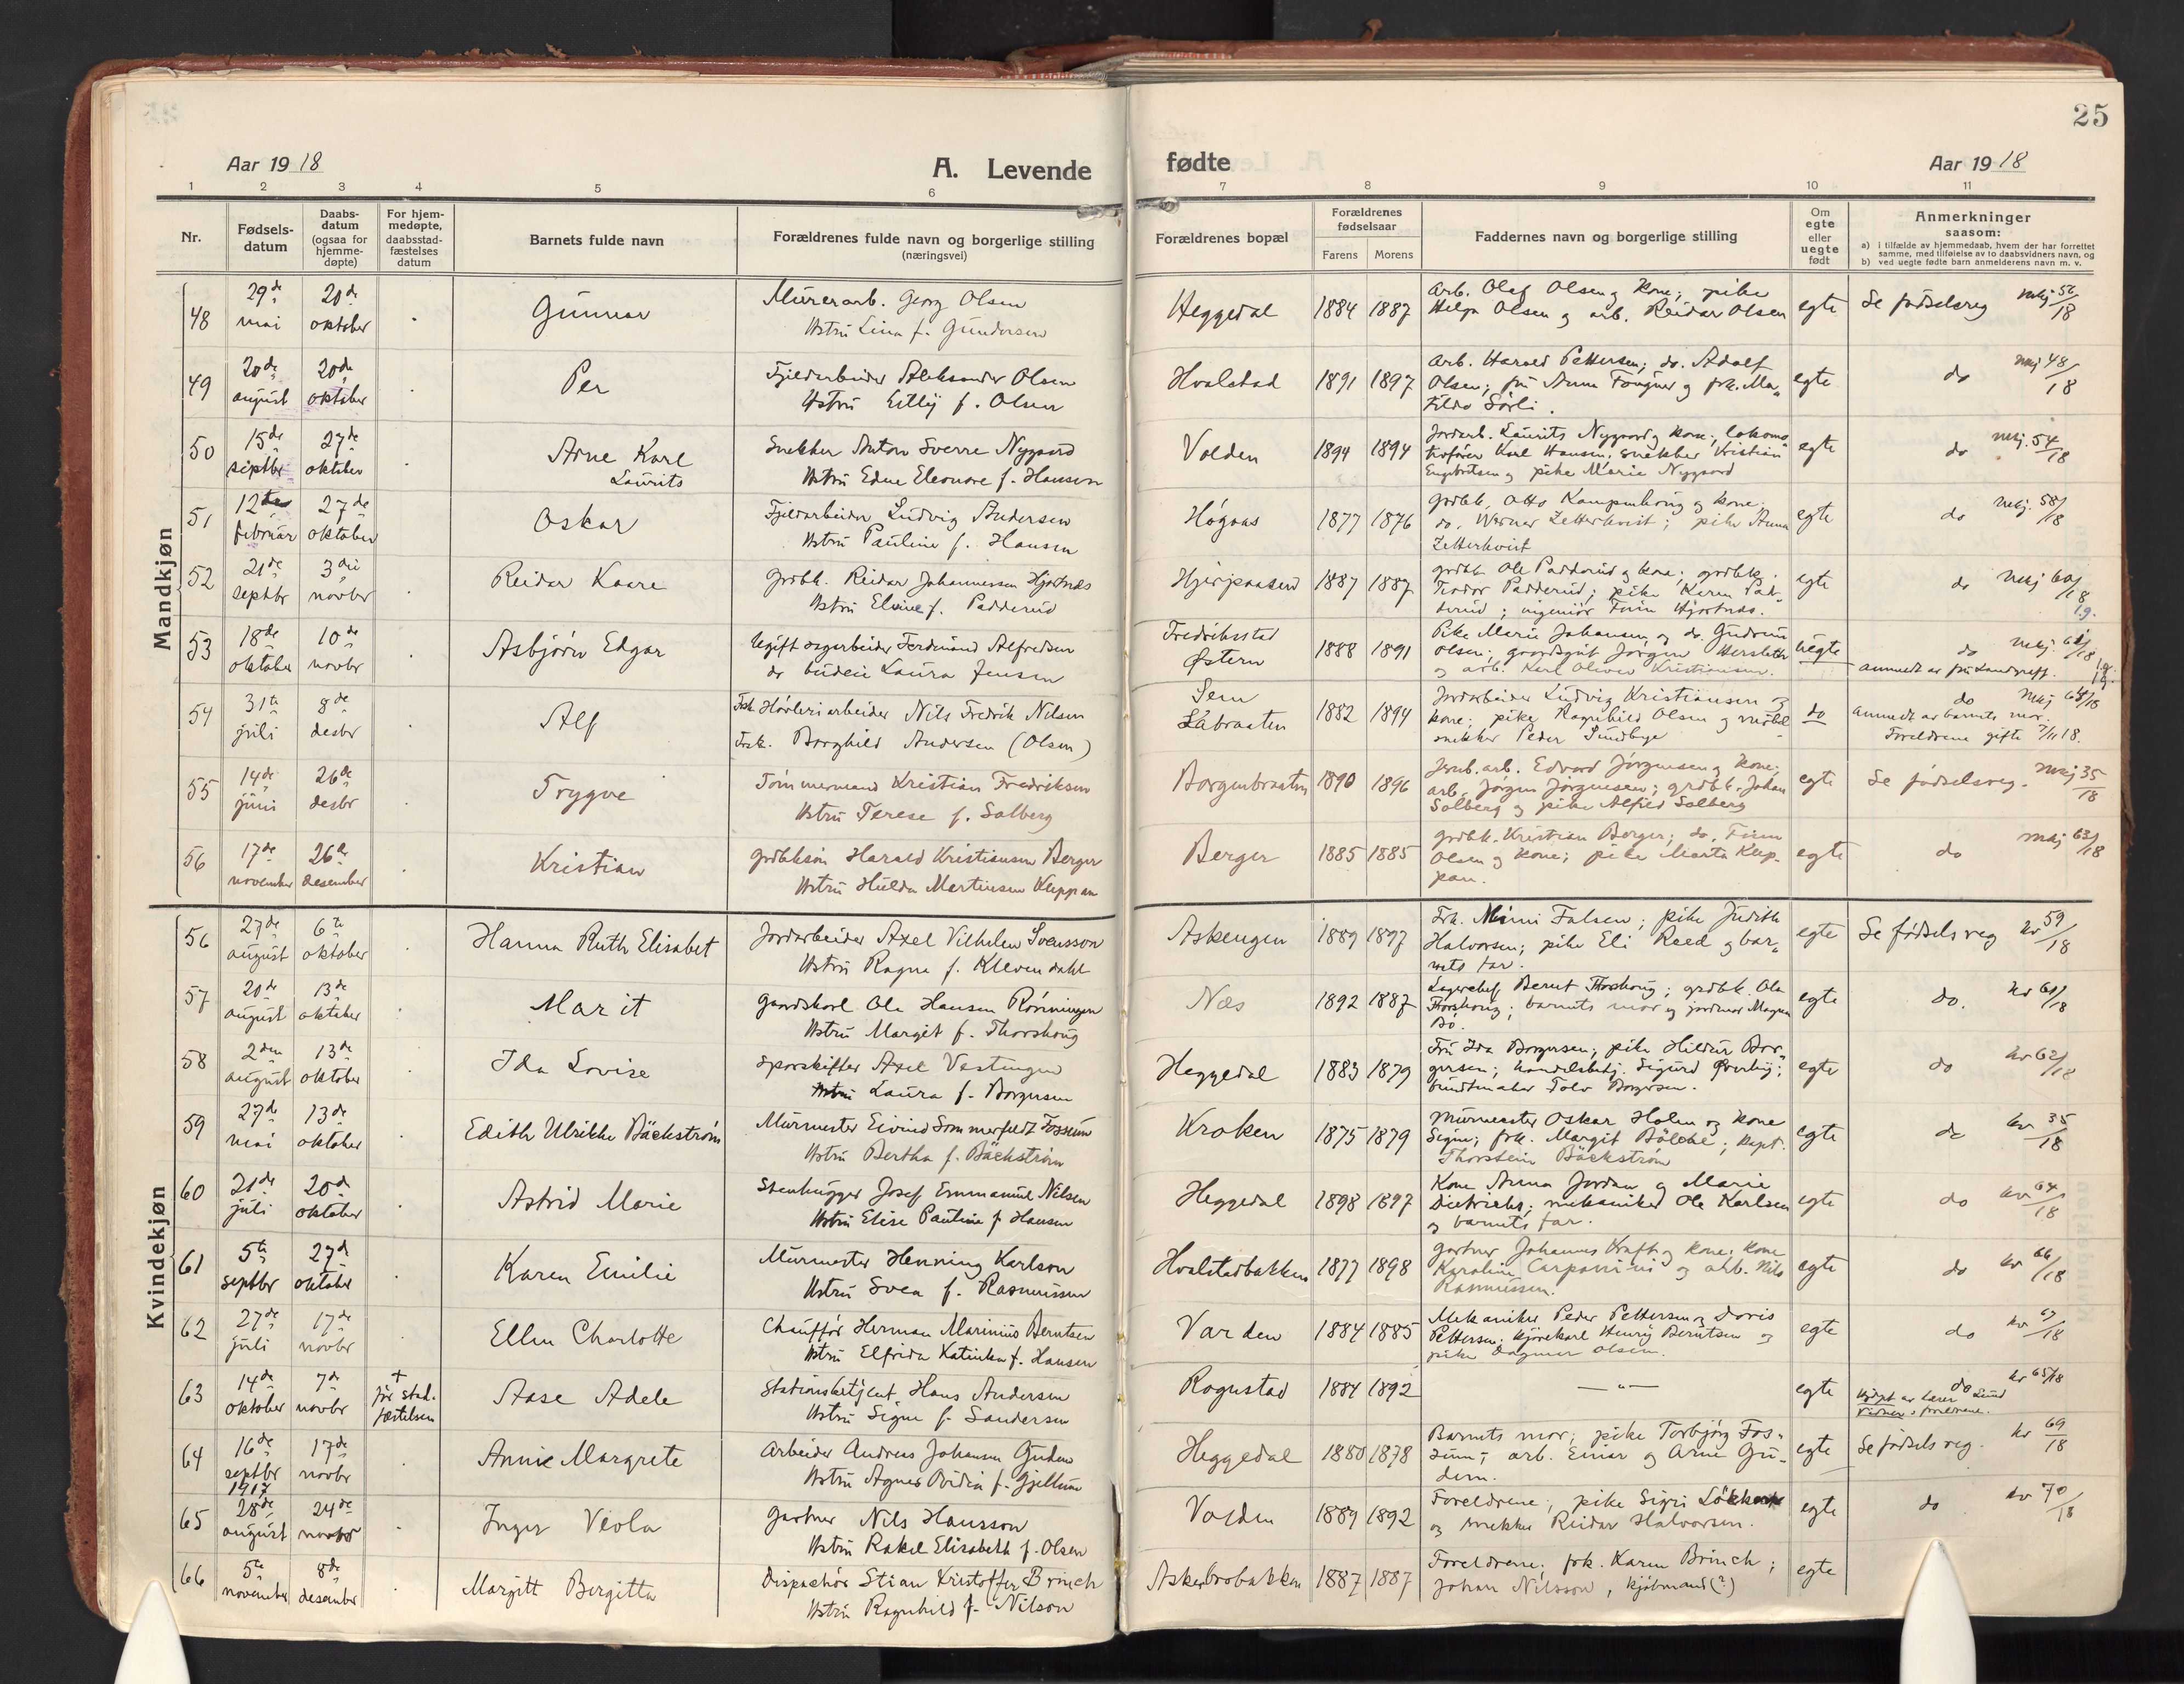 25
Aar 1918
A. Levende
fødte
Aar 1918
1 2 3 4 5 6 7 8 9 10 11
Nr.
Fødsels-
datum
Daabs-
datum
(ogsaa for
hjemme-
døpte)
For hjem-
medøpte,
daabsstad-
fæstelses
datum
Barnets fulde navn
Forældrenes fulde navn og borgerlige stilling
(næringsvei)
Forældrenes bopæl
Forældrenes
fødselsaar
Farens Morens
Faddernes navn og borgerlige stilling
Om
egte
eller
uegte
født
Anmerkninger
saasom:
a) i tilfælde av hjemmedaab, hvem der har forrettet
samme, med tilføielse av to daabsvidners navn, og
b) ved uegte fødte barn anmelderens navn m. v.
Mandkjøn
48
29de mai
20de oktober
Gunnar
Murerarb. Georg Olsen
Hstru Lina f. Gundersen
Heggedal
1884 1887
Arb. Olaf Olsen og kone; pike
Helga Olsen og arb. Reidar Olsen
egte
Se fødselsreg mkj 56/18
49
20de august
20de oktober
Per
Fjeldarbeider Aleksander Olsen
Hstru Eilly f. Olsen
Hvalstad
1891 1897
Arb. Harald Pettersen; do. Adolf
Olsen; fru Anna Fougner og frk. Ma-
tilde Sørli.
egte
do mkj 48/18
50
15de septbr
27de oktober
Arne Karl
Laurits
Snekker Anton Sverre Nygaard
Hstru Edne Eleonore f. Hansen
Volden
1894 1894
Jordarb. Laurits Nygaard og kone; lokomo-
tivfører Karl Hansen, snekker Kristian
Engebretsen og pike Marie Nygaard
egte
do mkj. 54/18
51
12te februar
27de oktober
Oskar
Fjeldarbeider Ludvig Andersen
Hstru Pauline f. Hansen
Høgaas
1877 1876
grdbk. Otto Kampenhoug og kone;
do. Werner Zetterkvist; pike Anna
Zetterkvist
egte
do mkj. 58/18
52
21de septbr
3die novbr
Reidar Kaare
Grdbk. Reidar Johannessen Hjortnæs
Hstru Elvine f. Padderud
1887 1887
grdbk Ole Padderud og kone; grdbk.
Teodor Padderud; pike Karen Pad-
derud; ingeniør Finn Hjortnæs.
egte
do mkj 60/18
l.g.
53
18de oktober
10de novbr
Asbjørn Edgar
Ugift sagarbeider Ferdinand Alfredsen
do budeie Laura Jensen
Fredriksstad
Østern
1888 1891
Pike Marie Johansen og do. Gudrun
Olsen; gaardsgut Jørgen Hersleth
og arb. Karl Oliver Kristiansen.
uegte
do mkj. 61/18
anmeldt av fru Landgraff.
l.g.
54
31te juli
8de desbr
Alf
Frsk. Høvleriarbeider Nils Fredrik Nilsen
Frsk. Borghild Andersen (Olsen)
Sem
Labraaten
1882 1894
Jordarbeider Ludvig Kristiansen og
kone; pike Ragnhild Olsen og møbel-
snekker Peder Sundbye
do
do mkj 64/18
anmeldt av barnets mor.
Foreldrene gifte 7/11 18.
55
14de juni
26de desbr
Trygve
Tømmermand Kristian Fredriksen
Hstru Terese f. Solberg
Borgenbraaten
1890 1896
Jernb.arb. Edvard Jørgensen og kone;
arb. Jørgen Jørgensen; grdbk. Johan
Solberg og pike Alfild Solberg
egte
Se fødselsreg. mkj 35/18
56
17de november
26de desember
Kristian
Grdbksøn Harald Kristiansen Berger
Hstru Hulda Martinsen Kleppan
Berger
1885 1885
grdbk. Kristian Berger; do. Finn
Olsen og kone; pike Marta Klep-
pan.
egte
do mkj 63/18
Kvindekjøn
56
27de august
6te oktober
Hanna Ruth Elisabet
Jordarbeider Axel Vilhelm Svensson
Hstru Ragna f. Klevendahl
Askengen
1889 1897
Frk. Mimi Falsen; pike Judith
Halvorsen; pike Eli Reed og bar-
nets far.
egte
Se fødselsreg kv 59/18
57
20de august
13de oktober
Marit
Gaardskarl Ole Hansen Rønningen
Hstru Margit f. Thorshoug
Næs
1892 1887
Lagerchef Bernt Thorshoug; grdbk. Ole
Thorshoug; barnets mor og jordmor Magna
Bø.
egte
do. kv 61/18
58
2den august
13de oktober
Ida Lovise
Sporskifter Axel Vestengen
Hstru Laura f. Borgersen
Heggedal
1883 1879
Fru Ida Borgersen; pike Hildur Bor-
gersen; handelsbetj. Sigurd Øverby;
buntmaker Tolv Borgersen.
egte
do kv 62/18
59
27de mai
13de oktober
Edith Ulrikke Bäckstrøm
Murmester Eivind Sommerfeldt Fossum
Hstru Bertha f. Bäckstrøm
Kroken
1875 1879
Murmester Oskar Holm og kone
Signe; frk. Margit Bølche; kapt.
Thorstein Bäckstrøm
egte
do kv 35/18
60
21de juli
20de oktober
Astrid Marie
Stenhugger Josef Emmanuel Nilsen
Hstru Elise Pauline f. Hansen
Heggedal
1898 1897
Kone Anna Jordan og Marie
Dietrichs; mekaniker Ole Karlsen
og barnets far.
egte
do kv 64/18
61
5te septbr
27de oktober
Karen Emilie
Murmester Henning Karlson
Hstru Svea f. Rasmussen
Hvalstadbakken
1877 1898
Gartner Johannes Kraft og kone; kone
Karoline Carpanini og arb. Nils
Rasmussen.
egte
do kv 66/18
62
27de juli
17de novbr
Ellen Charlotte
Chauffør Herman Marinius Berntsen
Hstru Elfrida Katinka f. Hansen
Varden
1884 1885
Mekaniker Peder Pettersen og Doris
Pettersen; kjørekarl Henry Berntsen og
pike Dagmar Olsen.
egte
do kv 67/18
63
14de oktober
7de novbr
+
før stad-
fæstelsen
Aase Adele
Stationsbetjent Hans Andersen
Hstru Signe f. Sandersen
Rogustad
1884 1892
— " —
egte
do kv 65/18
Hjdøpt av lærer Lund
Vidner: foreldrene.
64
16de septbr
1917
17de novbr
Annie Margrete
Arbeider Andreas Johansen Gudem
Hstru Agnes Ovidia f. Gjellum
Heggedal
1880 1878
Barnets mor; pike Torbjørg Fos-
sum; arb. Einar og Arne Gu-
dem.
egte
Se fødselsreg. kv 69/18
65
28de august
24de novbr
Inger Viola
Gartner Nils Hansson
Hstru Rakel Elisabeth f. Olsen
Volden
1889 1892
Foreldrene; pike Sigri
og snekker Reidar Halvorsen.
egte
do kv 70/18
66
5te november
8de desember
Margitt Birgitta
Dispachør Stian Kristoffer Brinch
Hstru Ragnhild f. Nilson
Askerbrobakken
1887 1887
Foreldrene; frk. Karen Brinch;
Johan Nilsson, kjøbmand(?)
egte